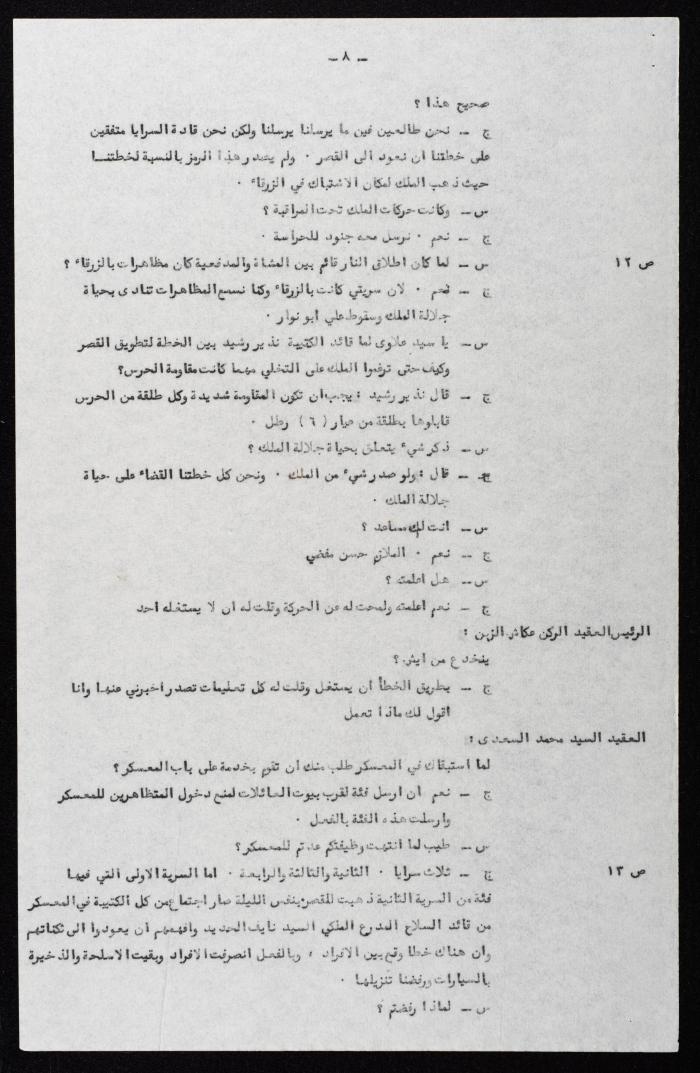 ــ ٨ ــ
صحيح هذا ؟
ج ــ نحن طالعين فين ما يرسلنا يرسلنا ولكن نحن قادة السرايا متفقين
على خطتنا ان نعود الى القصر ٠ ولم يصدر هذا الرمز بالنسبة لخطتنا
حيث ذهب الملك لمكان الاشتباك في الزرقاء ٠
س ــ وكانت حركات الملك تحت المراقبة ؟
ج ــ نعم ٠ نرسل معه جنود للحراسة ٠
ص ١٢
س ــ لما كان اطلاق النار قائم بين المشاة والمدفعية كان مظاهرات بالزرقاء ؟
ج ــ نعم ٠ لان سريتي كانت بالزرقاء وكنا نسمع المظاهرات تنادى بحياة
جلالة الملك وسقوط علي ابو نوار ٠
س ــ يا سيد علاوى لما قائد الكتيبة نذير رشيد بين الخطة لتطويق القصر
وكيف حتى ترغموا الملك على التخلي مهما كانت مقاومة الحرس؟
ج ــ قال نذير رشيد : يجب ان تكون المقاومة شديدة وكل طلقة من الحرس
قابلوها بطلقة من عيار ( ٦ ) رطل ٠
س ــ ذكر شيء يتعلق بحياة جلالة الملك ؟
ج ــ قال : ولو صدر شيء من الملك ٠ ونحن كل خطتنا القضاء على حياة
جلالة الملك ٠
س ــ انت لك مساعد ؟
ج ــ نعم ٠ الملازم حسن مفضي
س ــ هل اعلمته ؟
ج ــ نعم اعلمته ولمحت له عن الحركة وقلت له ان لا يستغله احد
الرئيس العقيد الركن عكاش الزبن :
ينخدع من ايش ؟
ج ــ بطريق الخطأ ان يستغل وقلت له كل تعليمات تصدر اخبرني عنها وانا
اقول لك ماذا تعمل
العقيد السيد محمد السعدى :
لما استبقاك في المعسكر طلب منك ان تقوم بخدمة على باب المعسكر ؟
ج ــ نعم ان ارسل فئة لقرب بيوت العائلات لمنع دخول المتظاهرين للمعسكر
وارسلت هذه الفئة بالفعل ٠
س ــ طيب لما انتهت وظيفتكم عدتم للمعسكر؟
ص ١٣
ج ــ ثلاث سرايا ٠ الثانية والثالثة والرابعة ٠ اما السرية الاولى التي فيها
فئة من السرية الثانية ذهبت للقصر بنفس الليلة صار اجتماع من كل الكتيبة في المعسكر
من قائد السلاح المدرع الملكي السيد نايف الحديد وافهمهم ان يعودوا الى ثكناتهم
وان هناك خطا وقع بين الافراد ، وبالفعل انصرفت الافراد وبقيت الاسلحة والذخيرة
بالسيارات ورفضنا تنزيلها ٠
س ــ لماذا رفضتم ؟